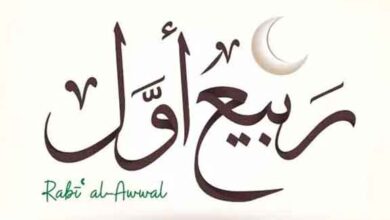 رَبيع أوَّل
Rabī‘ al-Awwal